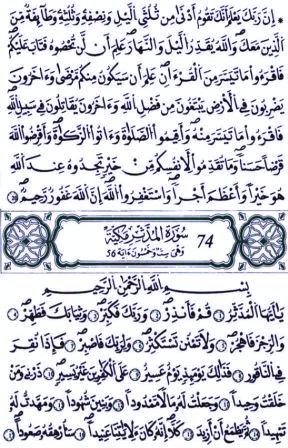 ۞ إِنَّ رَبَّكَ يَعْلَمُ أَنَّكَ تَقُومُ أَدْنَىٰ مِن ثُلُثَيِ الَّيْلِ وَنِصْفَهُ وَثُلُثَهُ وَطَائِفَةٌ مِّنَ
الَّذِينَ مَعَكَ وَاللَّهُ يُقَدِّرُ الَّيْلَ وَالنَّهَارَ عَلِمَ أَن لَّن تُحْصُوهُ فَتَابَ عَلَيْكُمْ
فَاقْرَءُوا مَا تَيَسَّرَ مِنَ الْقُرْءَانِ عَلِمَ أَن سَيَكُونُ مِنكُم مَّرْضَىٰ وَءَاخَرُونَ
يَضْرِبُونَ فِي الْأَرْضِ يَبْتَغُونَ مِن فَضْلِ اللَّهِ وَءَاخَرُونَ يُقَاتِلُونَ فِي سَبِيلِ اللَّهِ
فَاقْرَءُوا مَا تَيَسَّرَ مِنْهُ وَأَقِيمُوا الصَّلَوٰةَ وَءَاتُوا الزَّكَوٰةَ وَأَقْرِضُوا اللَّهَ
قَرْضًا حَسَنًا وَمَا تُقَدِّمُوا لِأَنفُسِكُم مِّنْ خَيْرٍ تَجِدُوهُ عِندَ اللَّهِ
هُوَ خَيْرًا وَأَعْظَمَ أَجْرًا وَاسْتَغْفِرُوا اللَّهَ إِنَّ اللَّهَ غَفُورٌ رَّحِيمٌ
74 سُورَةُ الْمُدَّثِّرِ مَكِّيَّةٌ
وَهِيَ سِتٌّ وَخَمْسُونَ ءَايَةً 56
بِسْمِ اللَّهِ الرَّحْمَٰنِ الرَّحِيمِ
يَا أَيُّهَا الْمُدَّثِّرُ ۝ قُمْ فَأَنذِرْ ۝ وَرَبَّكَ فَكَبِّرْ ۝ وَثِيَابَكَ فَطَهِّرْ ۝
وَالرُّجْزَ فَاهْجُرْ ۝ وَلَا تَمْنُن تَسْتَكْثِرُ ۝ وَلِرَبِّكَ فَاصْبِرْ ۝ فَإِذَا نُقِرَ
فِي النَّاقُورِ ۝ فَذَٰلِكَ يَوْمَئِذٍ يَوْمٌ عَسِيرٌ ۝ عَلَى الْكَافِرِينَ غَيْرُ يَسِيرٍ ۝ ذَرْنِي وَمَنْ
خَلَقْتُ وَحِيدًا ۝ وَجَعَلْتُ لَهُ مَالًا مَّمْدُودًا ۝ وَبَنِينَ شُهُودًا ۝ وَمَهَّدتُّ لَهُ
تَمْهِيدًا ۝ ثُمَّ يَطْمَعُ أَنْ أَزِيدَ ۝ كَلَّا إِنَّهُ كَانَ لِآيَاتِنَا عَنِيدًا ۝ سَأُرْهِقُهُ صَعُودًا ۝